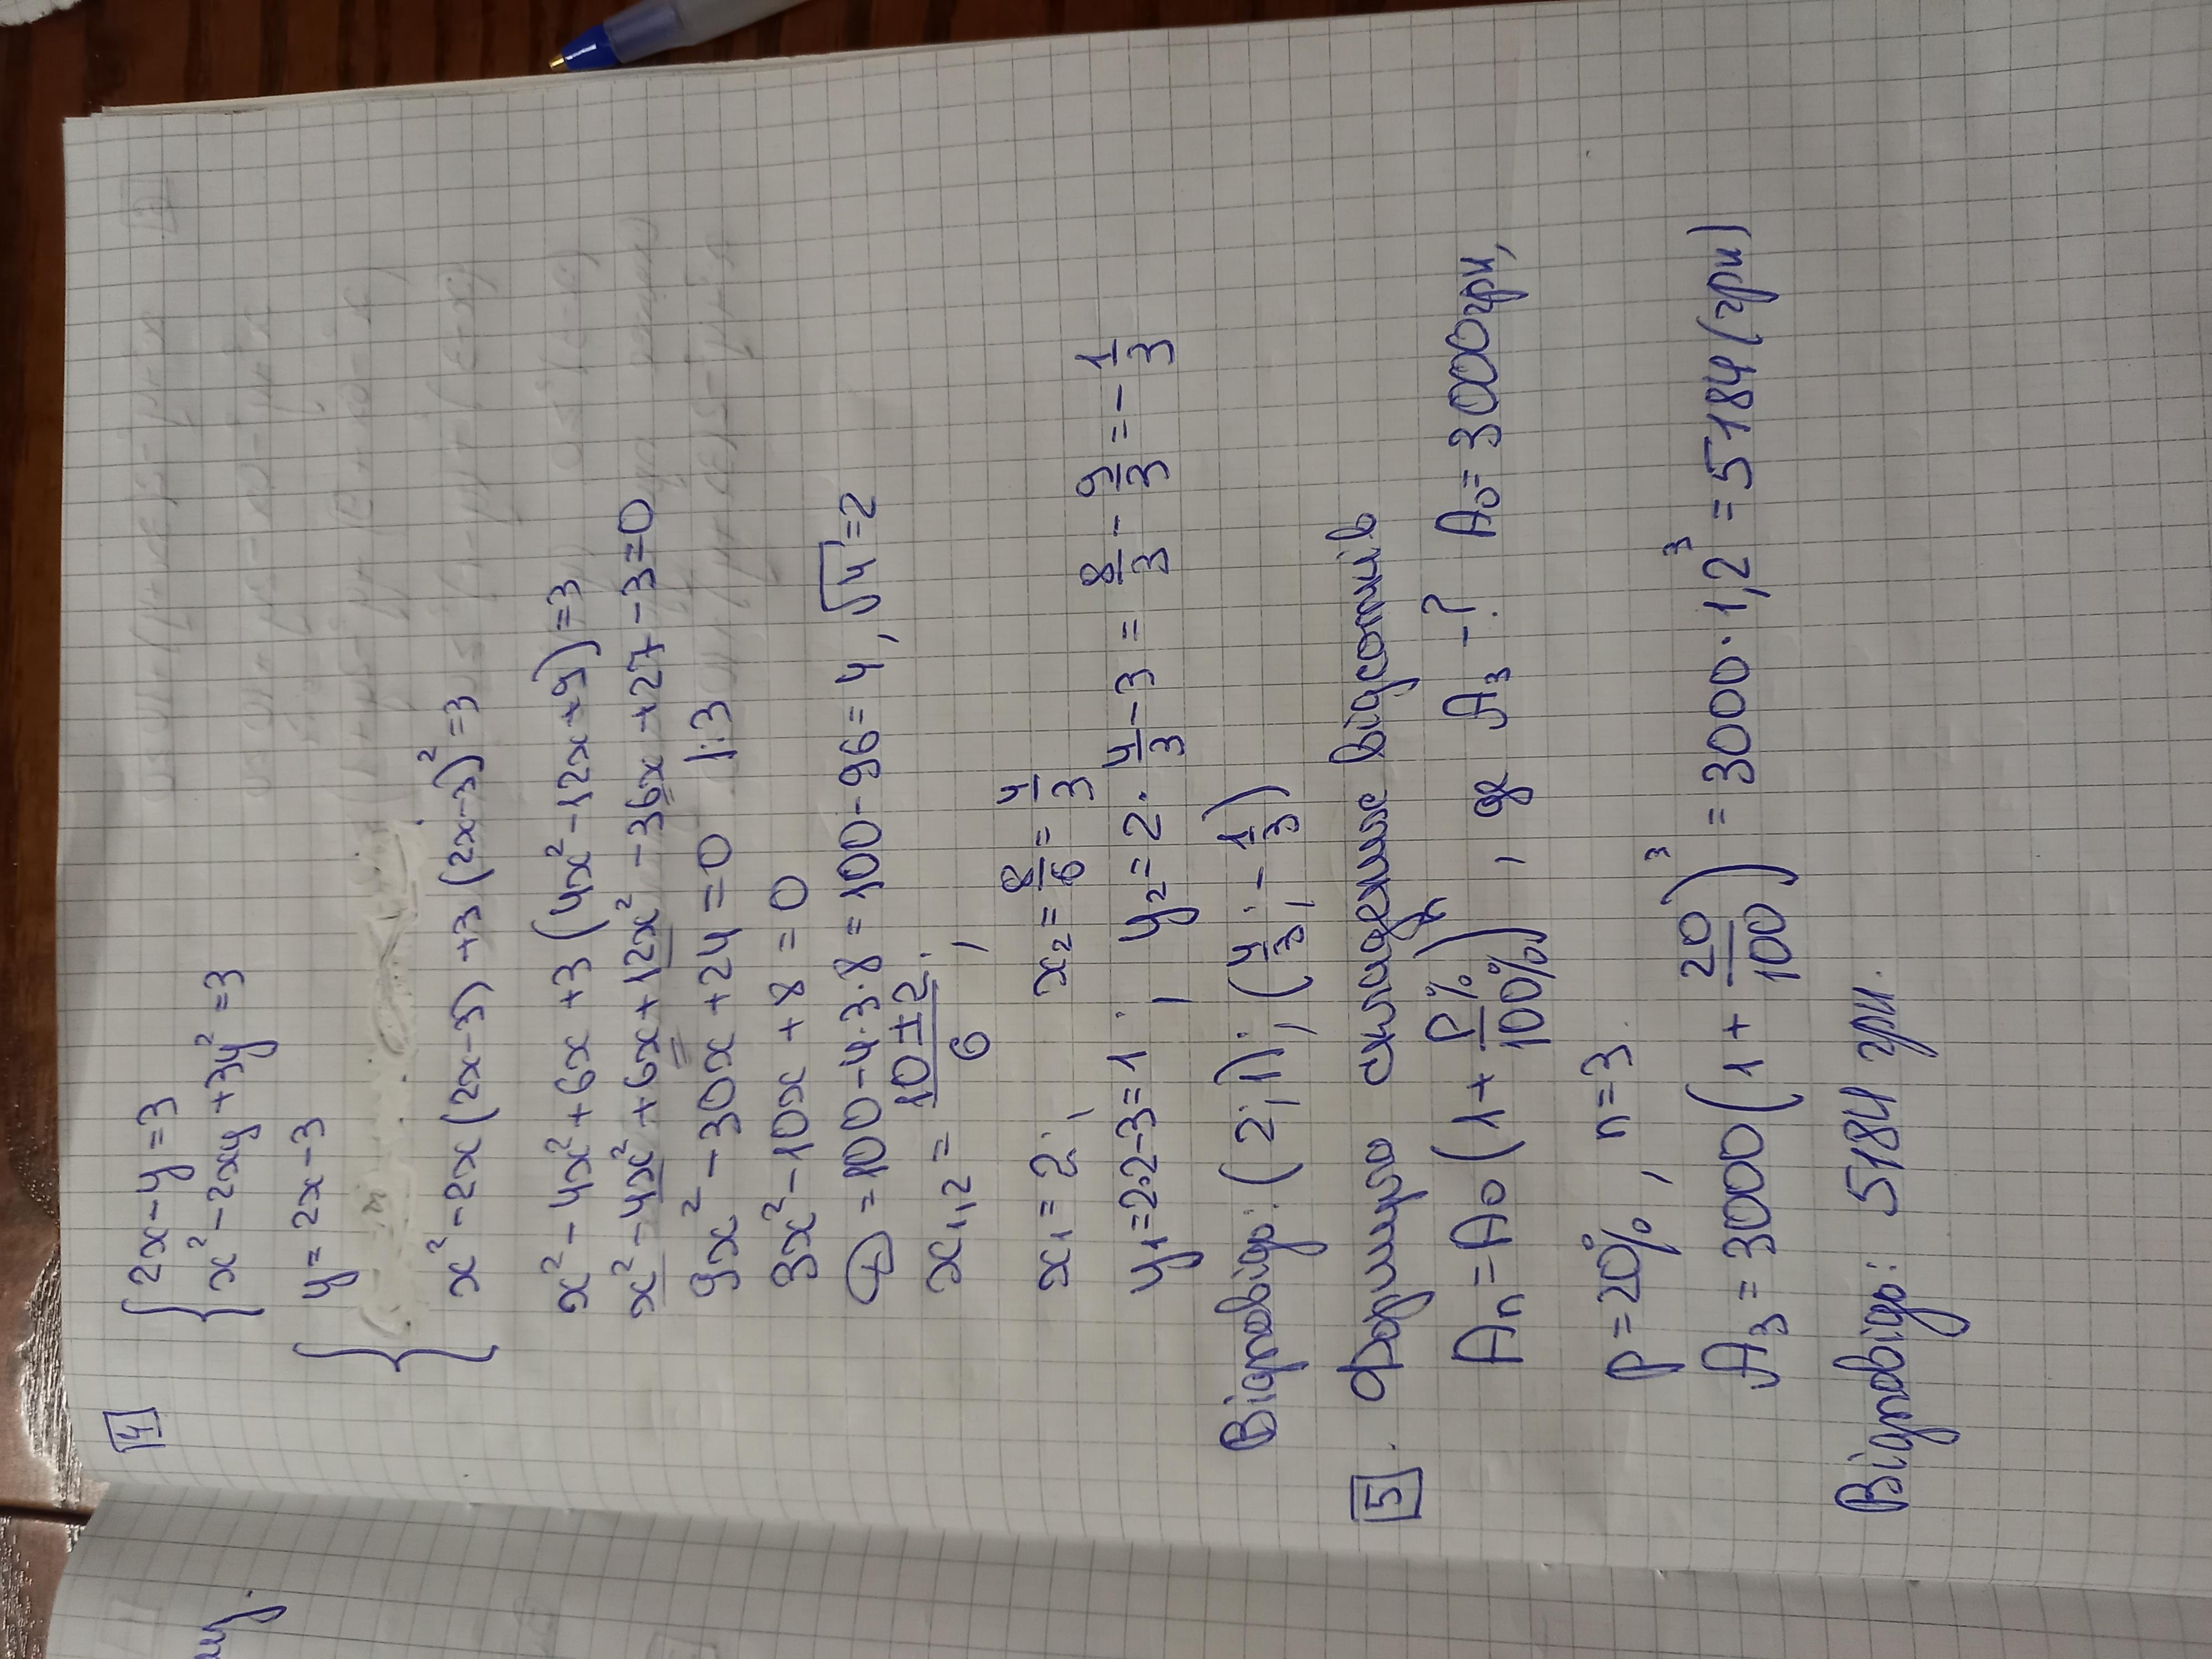 4
2x-y=3
x²-2xy+3y²=3
y=2x-3
x²-2x(2x-3)+3(2x-3)²=3
x²-4x²+6x+3(4x²-12x+9)=3
x²-4x²+6x+12x²-36x+27-3=0
9x²-30x+24=0 |:3
3x²-10x+8=0
D=100-4·3·8=100-96=4, √4=2
x₁,₂=(10±2)/6;
x₁=2; x₂=8/6=4/3
y₁=2·2-3=1; y₂=2·4/3-3=8/3-9/3=-1/3
Відповідь: (2;1); (4/3; -1/3)
5. Формула складених відсотків
Aₙ=A₀(1+P%/100%)ⁿ, де A₃-? A₀=3000грн,
P=20%, n=3.
A₃=3000(1+20/100)³=3000·1,2³=5184(грн)
Відповідь: 5184 грн.